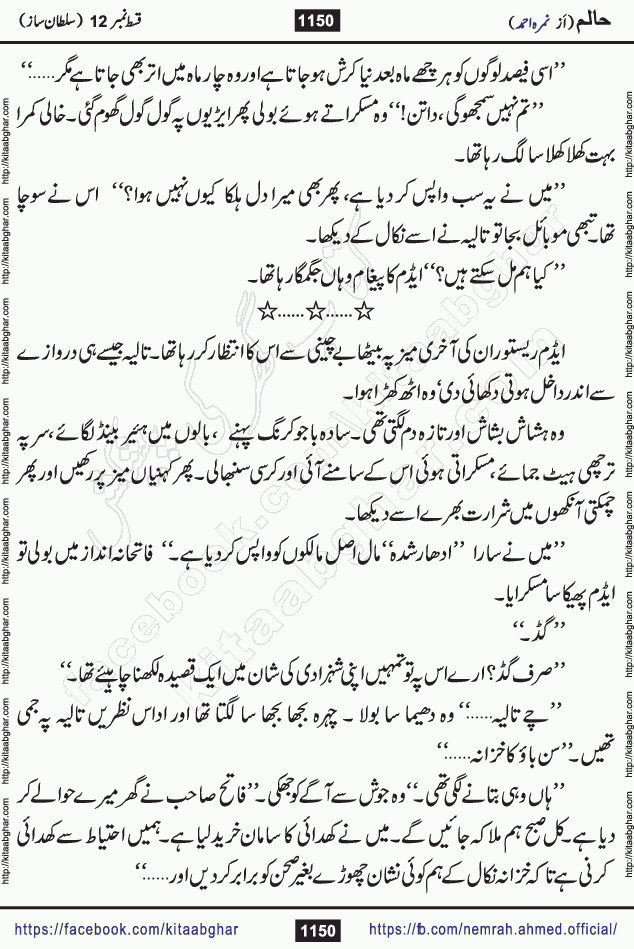 حالم (از نمرہ احمد) 1150 قسط نمبر 12 (سلطان ساز)
’’اسی فیصد لوگوں کو ہر چھے ماہ بعد نیا کرش ہو جاتا ہے اور وہ چار ماہ میں اتر بھی جاتا ہے مگر......‘‘
’’تم نہیں سمجھو گی، داتن!‘‘ وہ مسکراتے ہوئے بولی پھر ایڑیوں پہ گول گول گھوم گئی۔ خالی کمرا
بہت کھلا کھلا سا لگ رہا تھا۔
’’میں نے یہ سب واپس کر دیا ہے، پھر بھی میرا دل ہلکا کیوں نہیں ہوا؟‘‘ اس نے سوچا
تھا۔ تبھی موبائل بجا تو تالیہ نے اسے نکال کے دیکھا۔
’’کیا ہم مل سکتے ہیں؟‘‘ ایڈم کا پیغام وہاں جگمگا رہا تھا۔
☆......☆......☆
ایڈم ریستوران کی آخری میز پہ بیٹھا بے چینی سے اس کا انتظار کر رہا تھا۔ تالیہ جیسے ہی دروازے
سے اندر داخل ہوتی دکھائی دی‘ وہ اٹھ کھڑا ہوا۔
وہ ہشاش بشاش اور تازہ دم لگتی تھی۔ سادہ باجو کرنگ پہنے، بالوں میں ہئیر بینڈ لگائے، سر پہ
ترچھی ہیٹ جمائے، مسکراتی ہوئی اس کے سامنے آئی اور کرسی سنبھالی۔ پھر کہنیاں میز پر رکھیں اور پھر
چمکتی آنکھوں میں شرارت بھرے اسے دیکھا۔
’’میں نے سارا ’’ادھار شدہ‘‘ مال اصل مالکوں کو واپس کر دیا ہے۔‘‘ فاتحانہ انداز میں بولی تو
ایڈم پھیکا سا مسکرایا۔
’’گڈ۔‘‘
’’صرف گڈ؟ ارے اس پہ تو تمہیں اپنی شہزادی کی شان میں ایک قصیدہ لکھنا چاہیئے تھا۔‘‘
’’چے تالیہ......‘‘ وہ دھیما سا بولا ۔ چہرہ بجھا بجھا سا لگتا تھا اور اداس نظریں تالیہ پہ جمی
تھیں۔ ’’سن باؤ کا خزانہ......‘‘
’’ہاں وہی بتانے لگی تھی۔‘‘ وہ جوش سے آگے کو جھکی۔ ’’فاتح صاحب نے گھر میرے حوالے کر
دیا ہے۔ کل صبح ہم ملاکہ جائیں گے۔ میں نے کھدائی کا سامان خرید لیا ہے۔ ہمیں احتیاط سے کھدائی
کرنی ہے تاکہ خزانہ نکال کے ہم کوئی نشان چھوڑے بغیر صحن کو برابر کر دیں اور......‘‘
https://facebook.com/kitaabghar 1150 https://fb.com/nemrah.ahmed.official/
http://kitaabghar.com http://kitaabghar.com http://kitaabghar.com http://kitaabghar.com http://kitaabghar.com http://kitaabghar.com http://kitaabghar.com http://kitaabghar.com
http://kitaabghar.com http://kitaabghar.com http://kitaabghar.com http://kitaabghar.com http://kitaabghar.com http://kitaabghar.com http://kitaabghar.com http://kitaabghar.com
کتاب گھر کی پیشکش
facebook.com/kitaabghar
kitaabghar.com